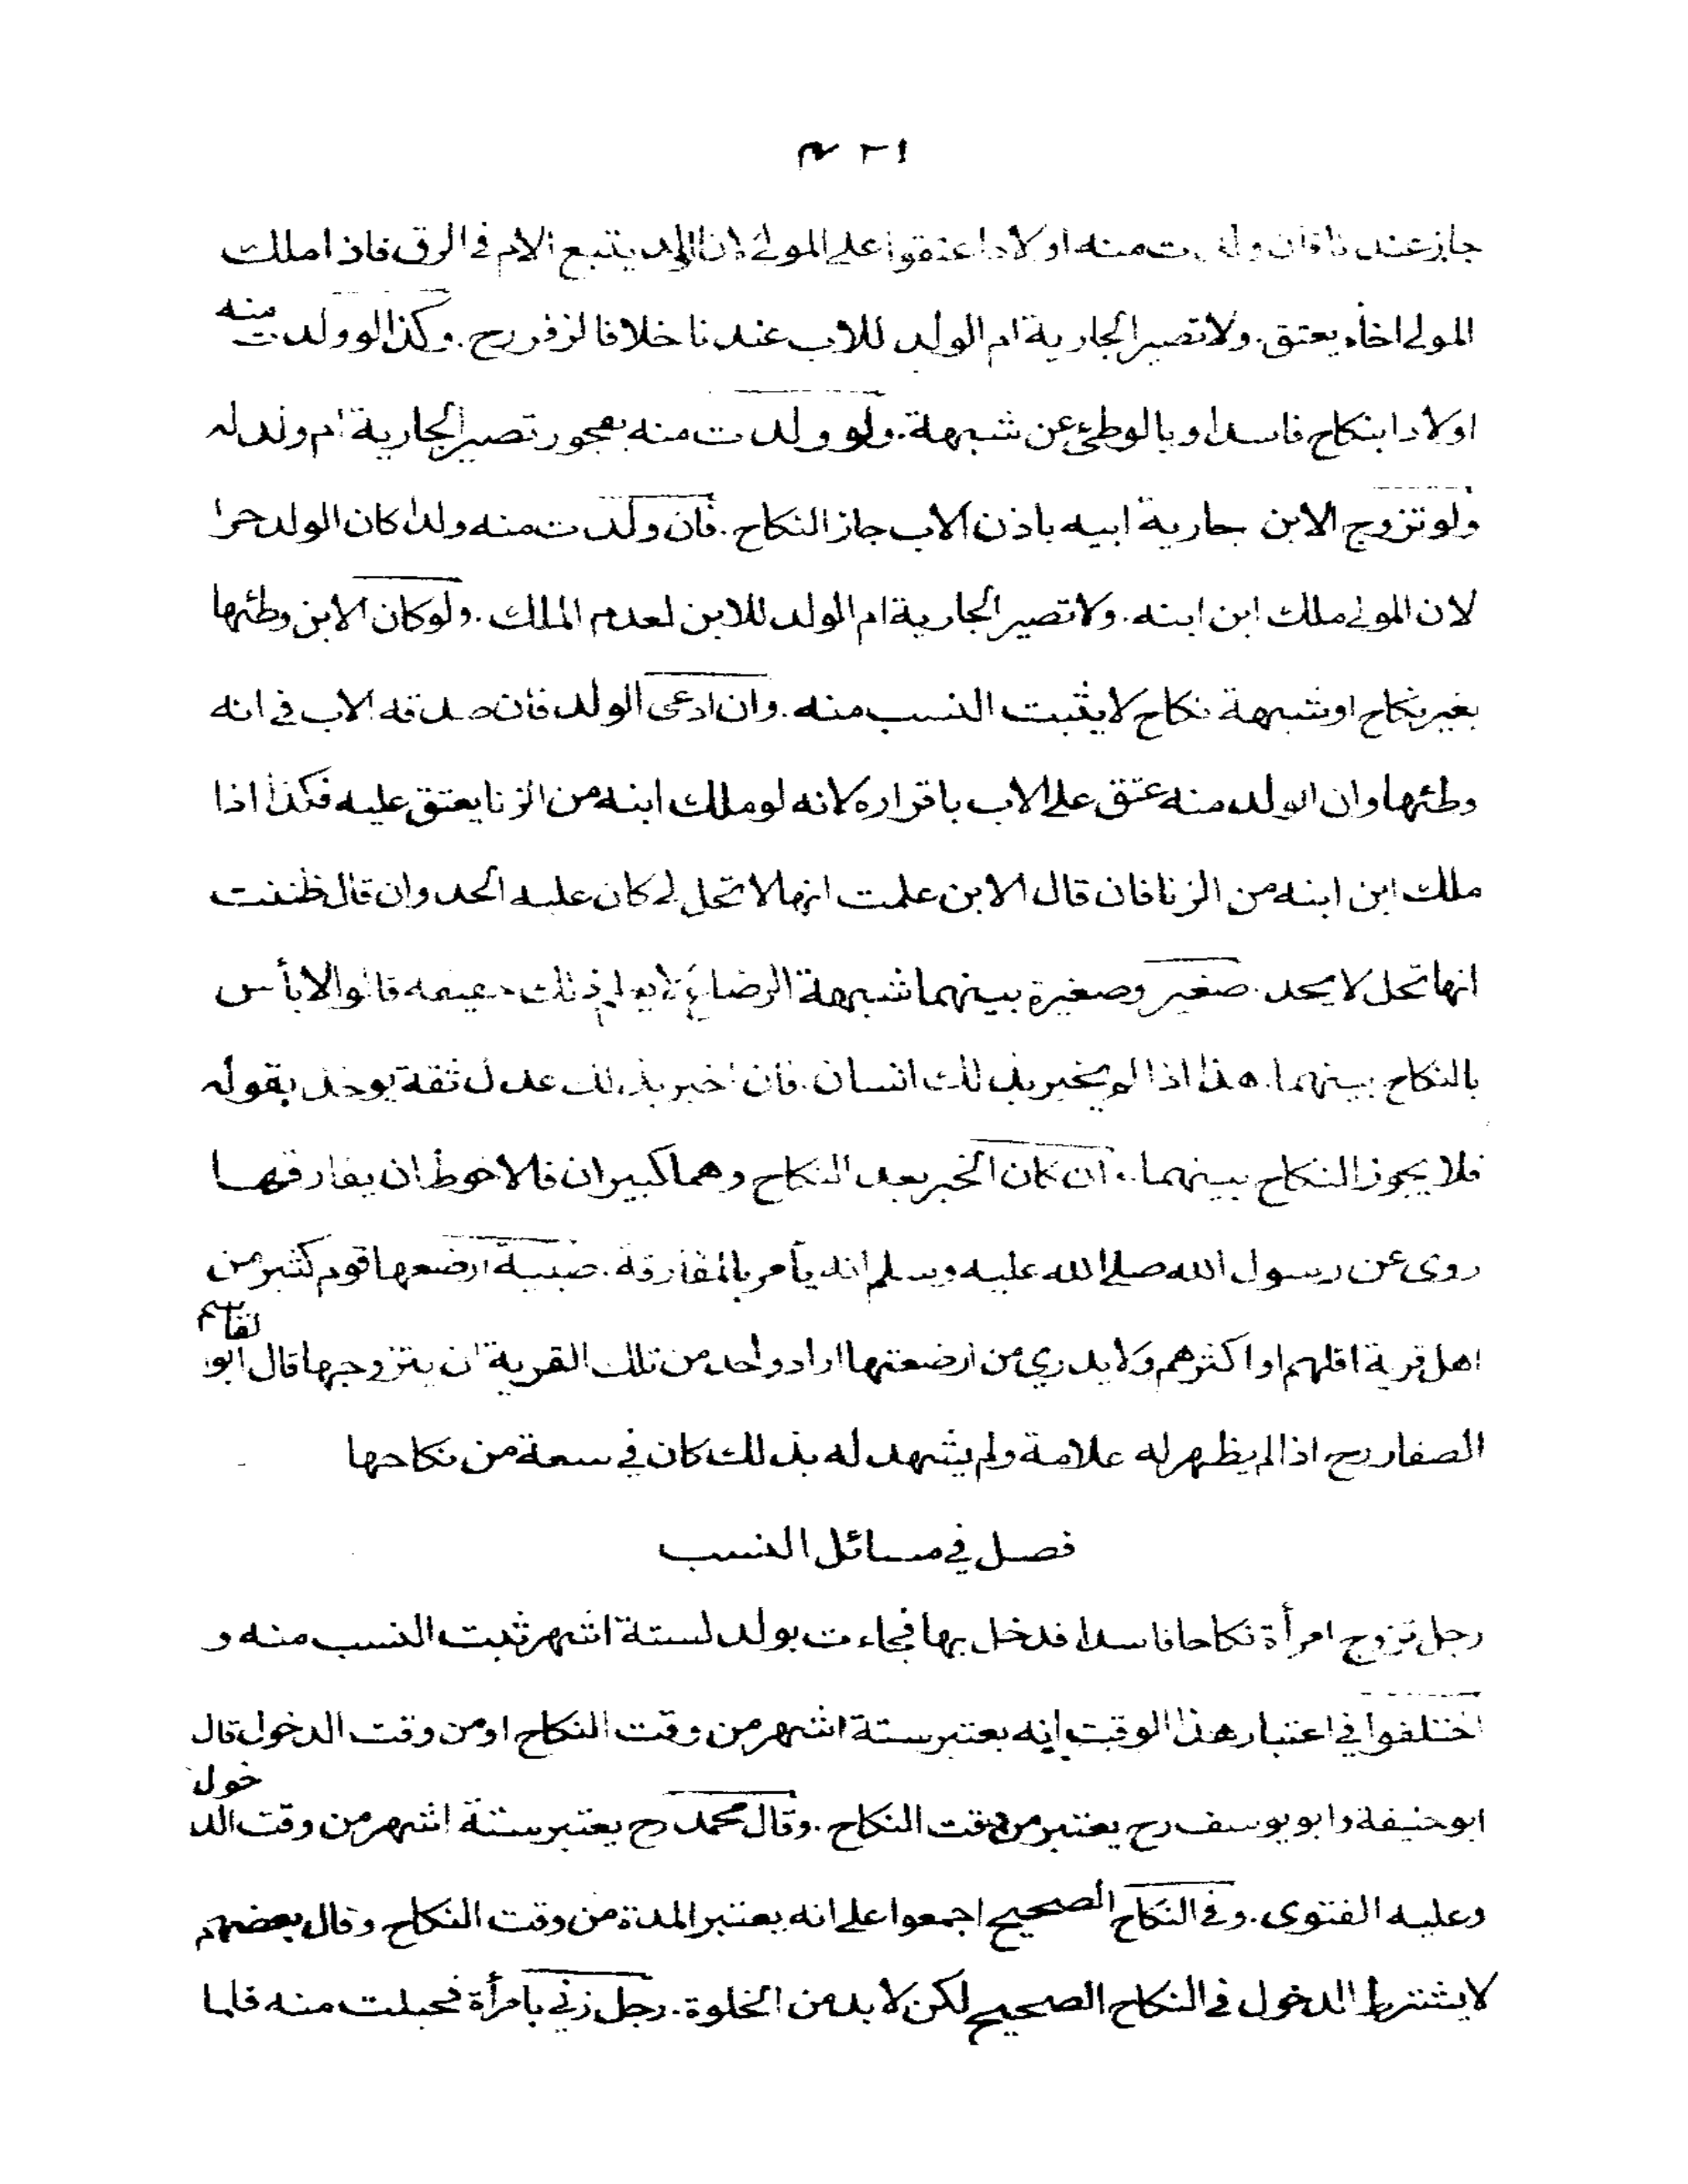 جاز عندنا فان ولدت منه اولادا عتقوا على المولى لان الولد يتبع الام فى الرق فاذا ملك
المولى اخاه يعتق. ولا تصير الجارية ام الولد للاب عندنا خلافا لزفر رح. وكذا لو ولدت منه
اولادا بنكاح فاسد او بالوطئ عن شبهة. ولو ولدت منه بفجور تصير الجارية ام ولد له
ولو تزوج الابن جارية ابيه باذن الاب جاز النكاح. فان ولدت منه ولدا كان الولد حرا
لان المولى ملك ابن ابنه. ولا تصير الجارية ام الولد للابن لعدم الملك. ولو كان الابن وطئها
بغير نكاح او شبهة نكاح لا يثبت النسب منه. وان ادعى الولد فان صدقه الاب فى انه
وطئها وان الولد منه عتق على الاب باقراره لانه لو ملك ابنه من الزنا يعتق عليه فكذا اذا
ملك ابن ابنه من الزنا فان قال الابن علمت انها لا تحل لى كان عليه الحد وان قال ظننت
انها تحل لا يحد. صغير وصغيرة بينهما شبهة الرضاع لا يعلم ذلك حقيقة قالوا لا بأس
بالنكاح بينهما. هذا اذا لم يخبر بذلك انسان. فان اخبر بذلك عدل ثقة يوخذ بقوله
فلا يجوز النكاح بينهما. ان كان الخبر بعد النكاح وهما كبيران فالاحوط ان يفارقها
روى عن رسول الله صلى الله عليه وسلم انه يأمر بالمفارقة. صبية ارضعها قوم كثير من
اهل قرية اقلهم او اكثرهم ولا يدري من ارضعتها اراد واحد من تلك القرية ان يتزوجها قال ابو القاسم
الصفار رح اذا لم يظهر له علامة ولم يشهد له بذلك كان في سعة من نكاحها
فصل في مسائل النسب
رجل تزوج امرأة نكاحا فاسدا فدخل بها فجاءت بولد لستة اشهر ثبت النسب منه و
اختلفوا في اعتبار هذا الوقت انه يعتبر ستة اشهر من وقت النكاح او من وقت الدخول قال
ابو حنيفة وابو يوسف رح يعتبر من وقت النكاح. وقال محمد رح يعتبر ستة اشهر من وقت الدخول
وعليه الفتوى. وفى النكاح الصحيح اجمعوا على انه يعتبر المدة من وقت النكاح وقال بعضهم
لا يشترط الدخول فى النكاح الصحيح لكن لا بد من الخلوة. رجل زنى بامرأة فحبلت منه فلما